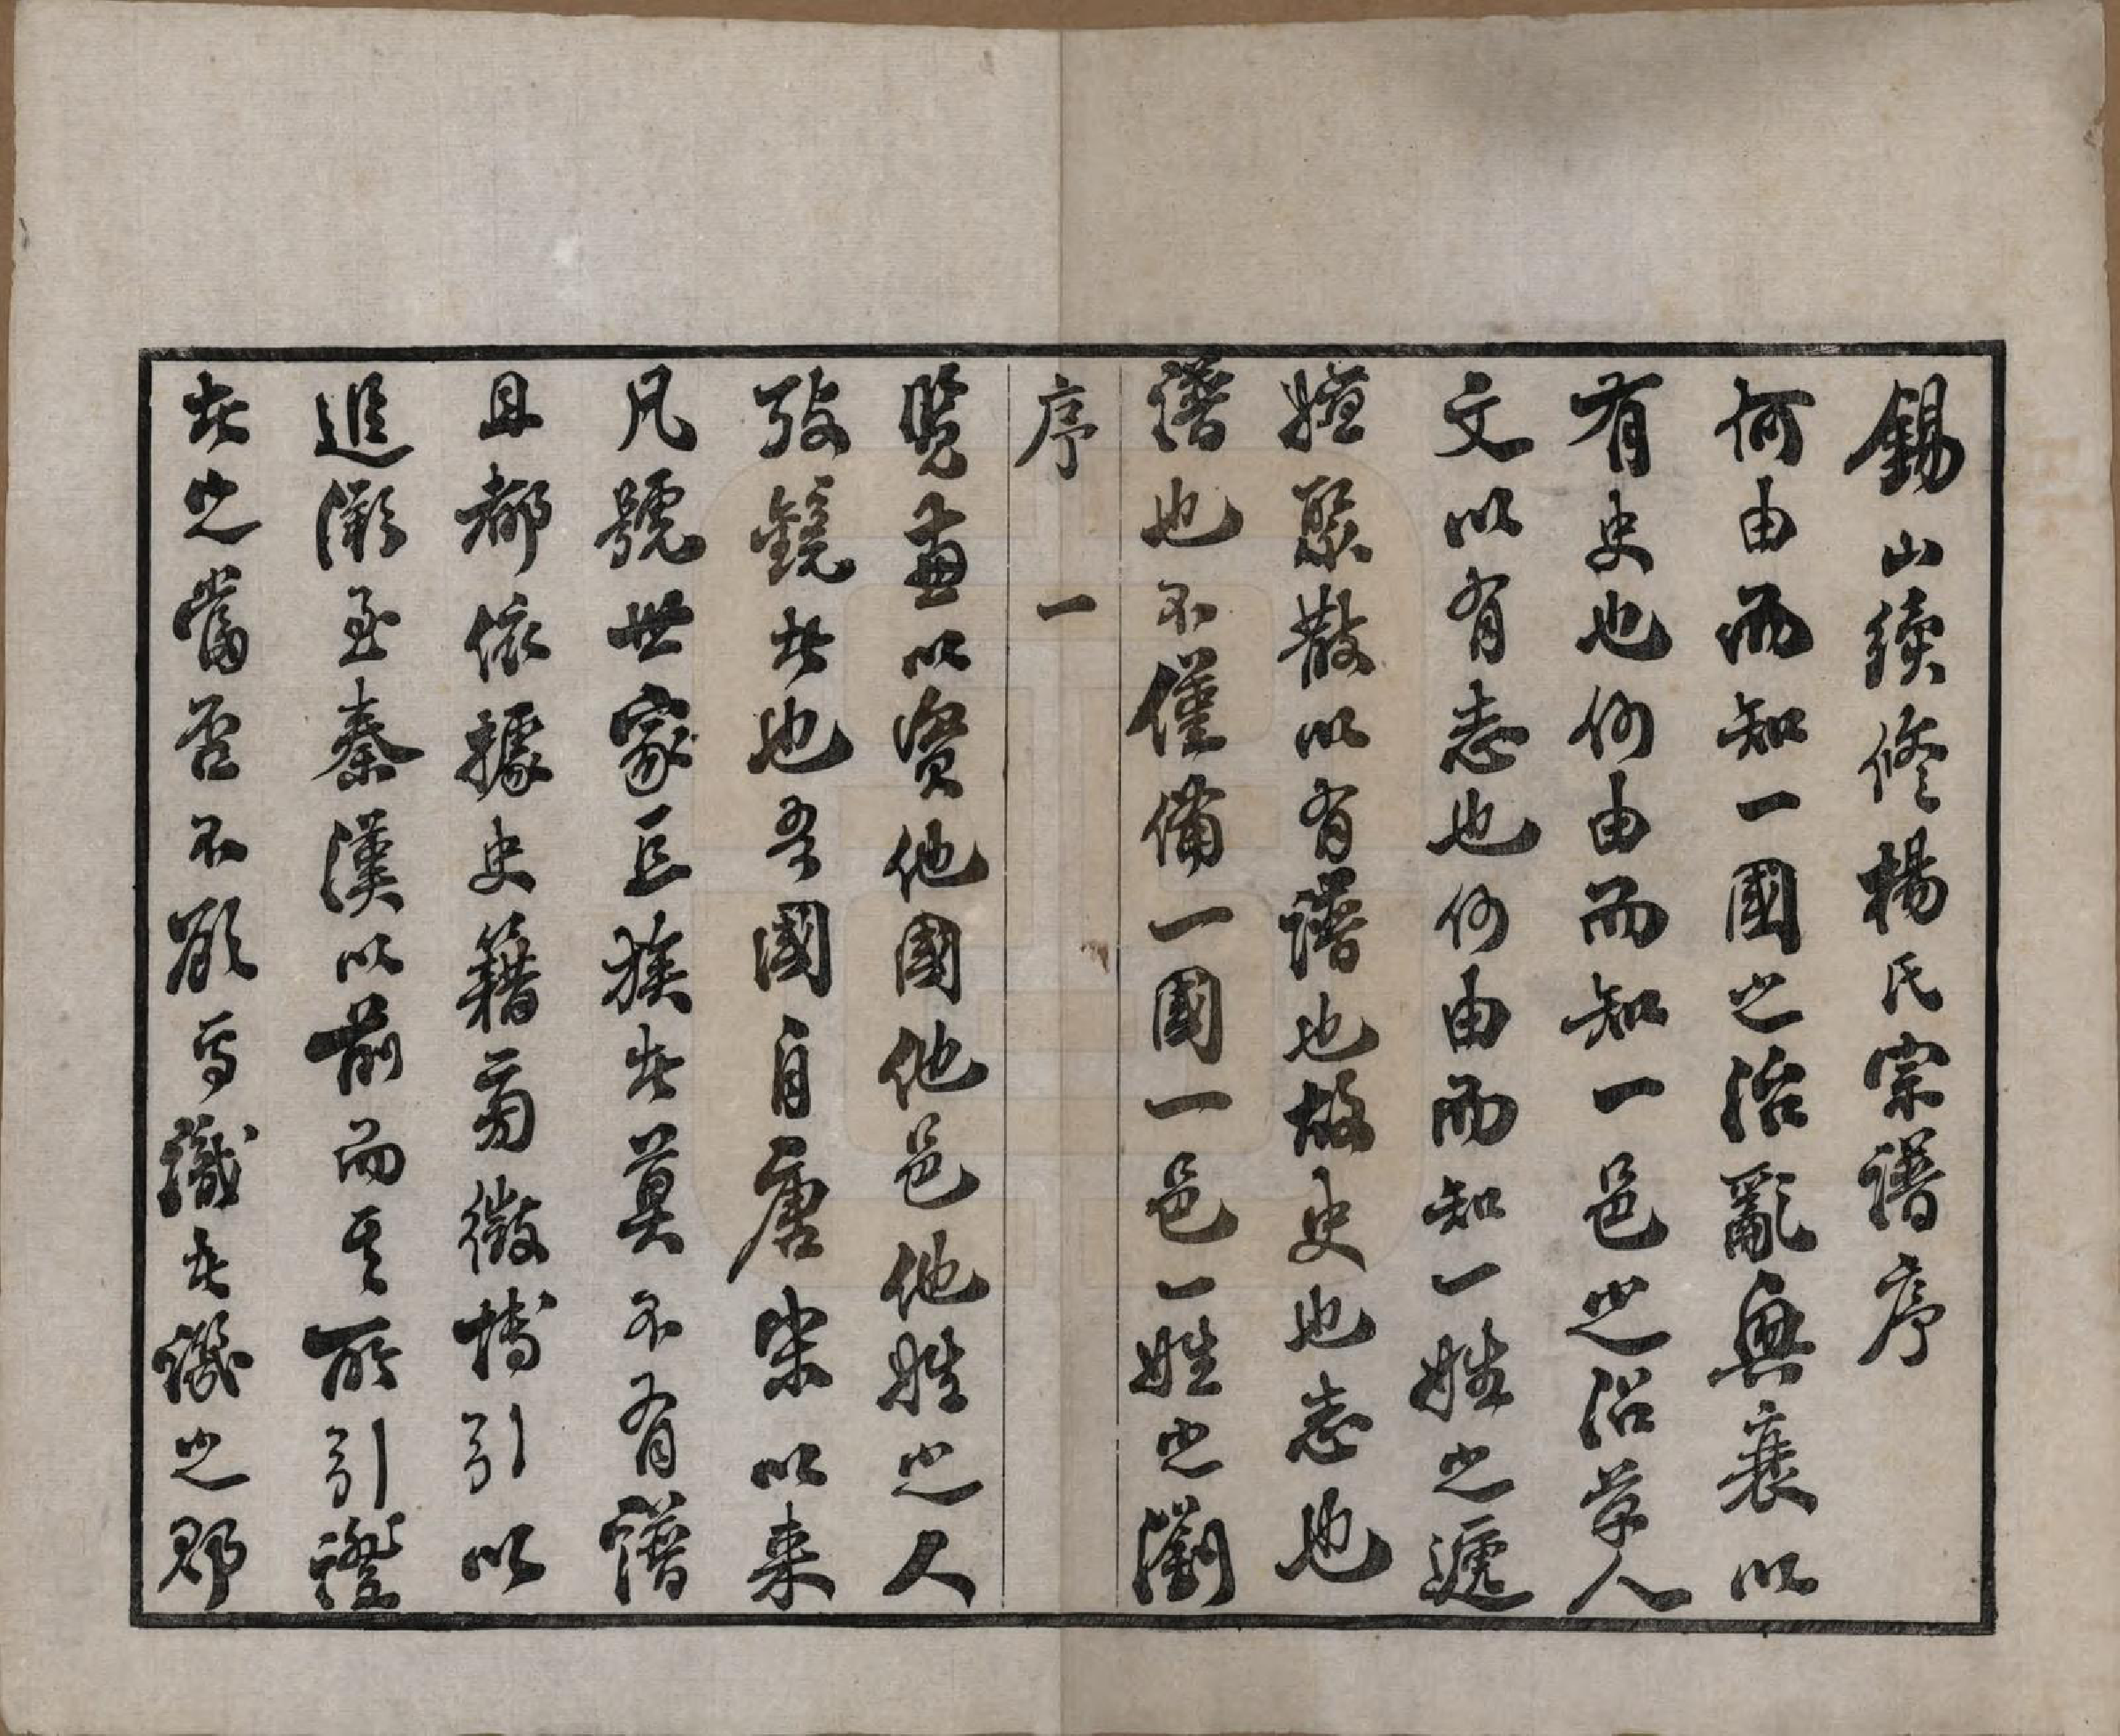 錫山續修楊氏宗譜序
何由而知一國之治亂興衰以
有史也何由而知一邑之沿革人
文以有志也何由而知一姓之遞
嬗聚散以有譜也故史也志也
譜也不僅備一國一邑一姓之瀏
序 一
覽盖以資他國他邑他姓之人
攷鏡者也吾國自唐宋以來
凡號世家巨族者莫不有譜
且都依據史籍旁徵博引以
追溯至秦漢以前而其所引證
者之當否不顧焉識者譏之鄙